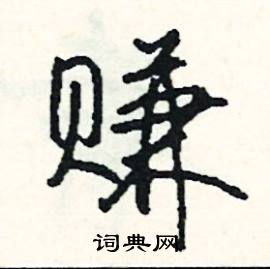 赚
词典网